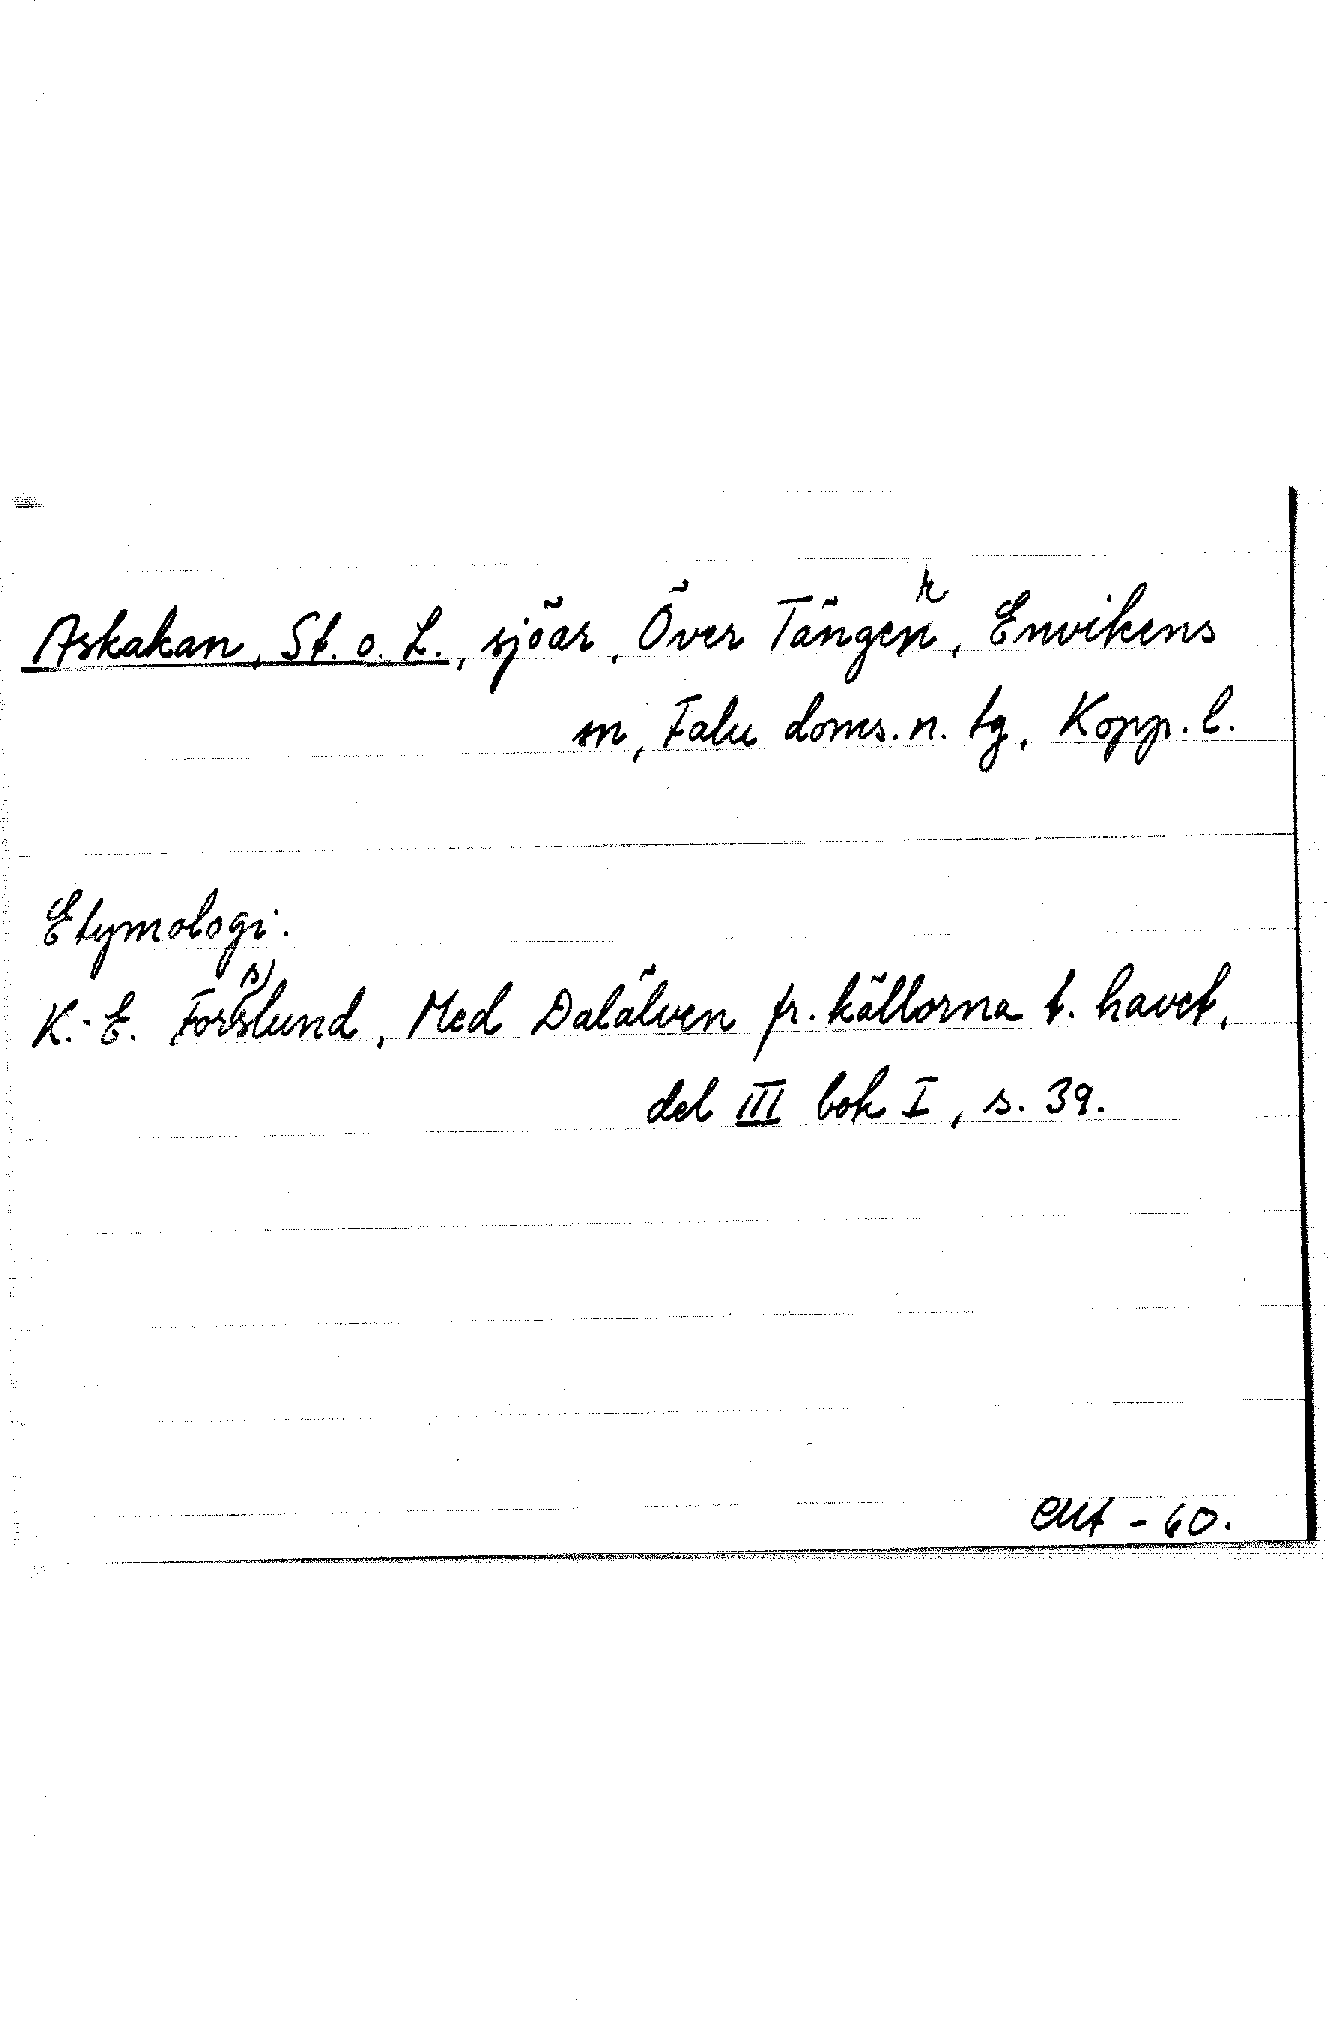 Askakan, St. o. L., sjöar, Över Tänger, Envikens
sn, Falu doms. n. tg, Kopp. l.
Etymologi.
K.-E. Forsslund, Med Dalälven fr. källorna t. havet,
del III bok I, s. 39.
-60.